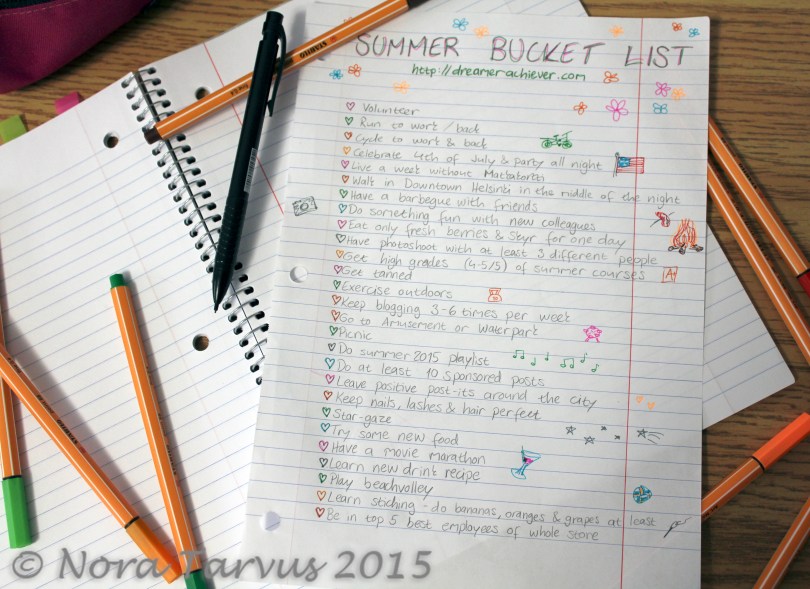 SUMMER BUCKET LIST
http://dreamerachiever.com
Volunteer
Run to work / back
Cycle to work & back
Celebrate 4th of July & party all night
Live a week without
Walk in Downtown Helsinki in the middle of the night
Have a barbegue with friends
Do something fun with new colleagues
Eat only fresh berries & Skyr for one day
Have photoshoot with at least 3 different people
Get high grades (4-5/5) of summer courses
A+
Get tanned
Exercise outdoors
Keep blogging 3-6 times per week
Go to Amusement or Waterpark
Picnic
Do summer 2015 playlist
Do at least 10 sponsored posts
Leave positive post-its around the city
Keep nails, lashes & hair perfect
Star-gaze
Try some new food
Have a movie marathon
Learn new drink recipe
Play beachvolley
Learn stiching - do bananas, oranges & grapes at least
Be in top 5 best employees of whole store
© Nora Tarvus 2015